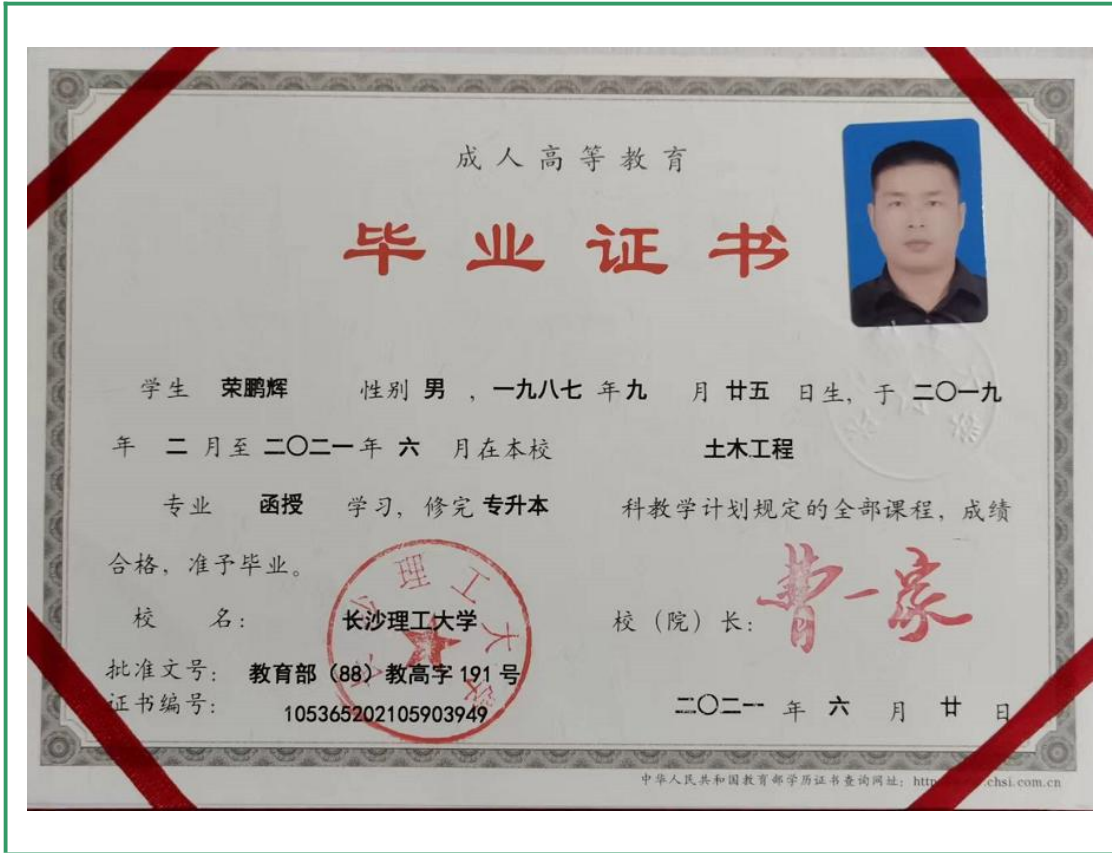 成人高等教育
毕业证书
学生 荣鹏辉 性别 男 ，一九八七 年 九 月 廿五 日生，于 二〇一九
年 二 月至 二〇二一 年 六 月在本校 土木工程
专业 函授 学习，修完 专升本 科教学计划规定的全部课程，成绩
合格，准予毕业。
校 名： 长沙理工大学 校（院）长： 曹一家
批准文号： 教育部（88）教高字 191 号
证书编号： 105365202105903949 二〇二一 年 六 月 廿 日
中华人民共和国教育部学历证书查询网址：http chsi.com.cn